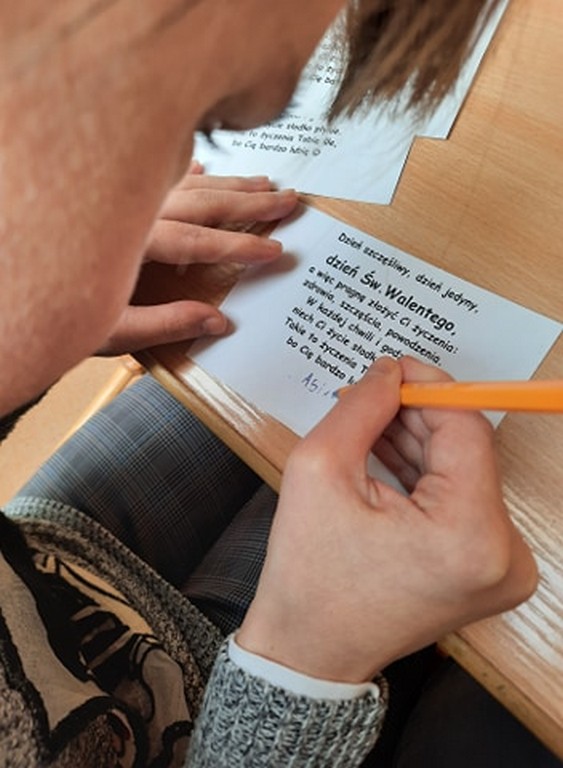 cie słodko płynie,
to życzenia Tobie śle,
bo Cię bardzo lubię ☺
Dzień szczęśliwy, dzień jedyny,
dzień Św. Walentego,
a więc pragnę złożyć Ci życzenia:
zdrowia, szczęścia, powodzenia,
W każdej chwili i
niech Ci życie słodko
Takie to życzenia
bo Cię bardzo